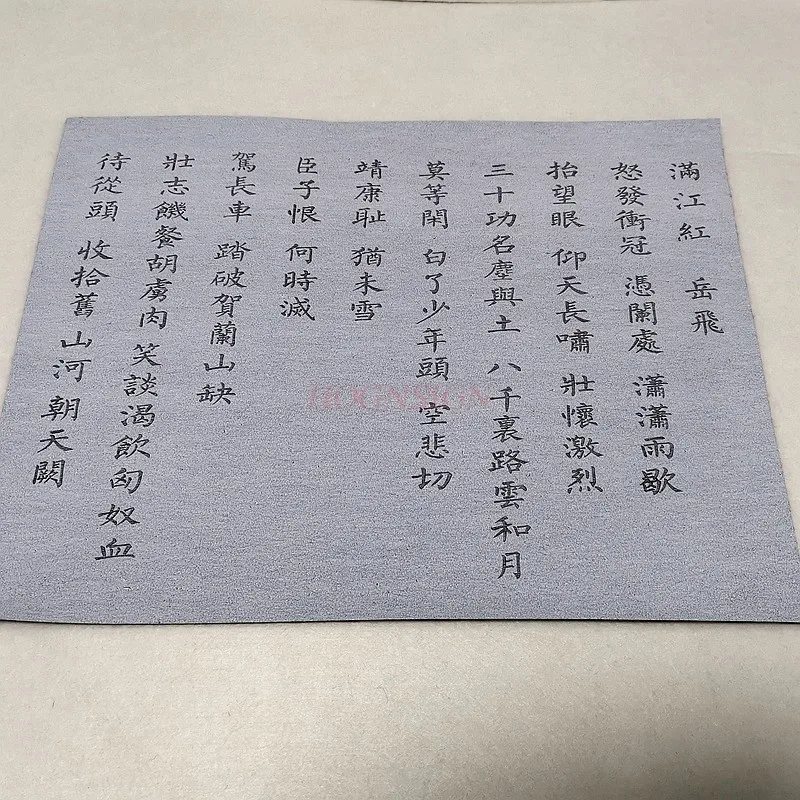 滿江紅 岳飛
怒發衝冠 憑闌處 瀟瀟雨歇
抬望眼 仰天長嘯 壯懷激烈
三十功名塵與土 八千裏路雲和月
莫等閑 白了少年頭 空悲切
靖康耻 猶未雪
臣子恨 何時滅
駕長車 踏破賀蘭山缺
壯志饑餐胡虜肉 笑談渴飲匈奴血
待從頭 收拾舊山河 朝天闕